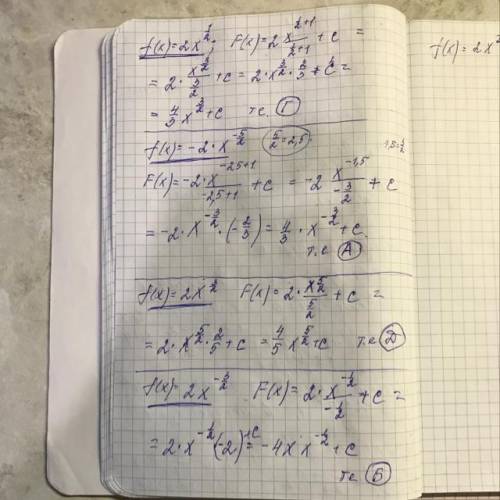 f(x)=2x^{1/2}; F(x)=2 x^{1/2+1}/(1/2+1) + c =
= 2· x^{3/2}/(3/2) + c = 2·x^{3/2}·2/3 + c =
= 4/3 x^{3/2} + c т.е. Г
f(x)=-2·x^{-5/2} 5/2=2,5
F(x)=-2·x^{-2,5+1}/(-2,5+1) + c = -2 x^{-1,5}/(-3/2) + c
= -2·x^{-3/2}·(-2/3) = 4/3·x^{-3/2} + c.
т.е А
f(x)=2x^{3/2} F(x)=2· x^{5/2}/(5/2) + c =
= 2·x^{5/2}·2/5 + c = 4/5 x^{5/2} + c т.е Д
f(x)=2x^{-3/2} F(x)=2· x^{-1/2}/(-1/2) + c =
= 2·x^{-1/2}(-2)+c = -4x x^{-1/2} + c
те Б
f(x)=2x